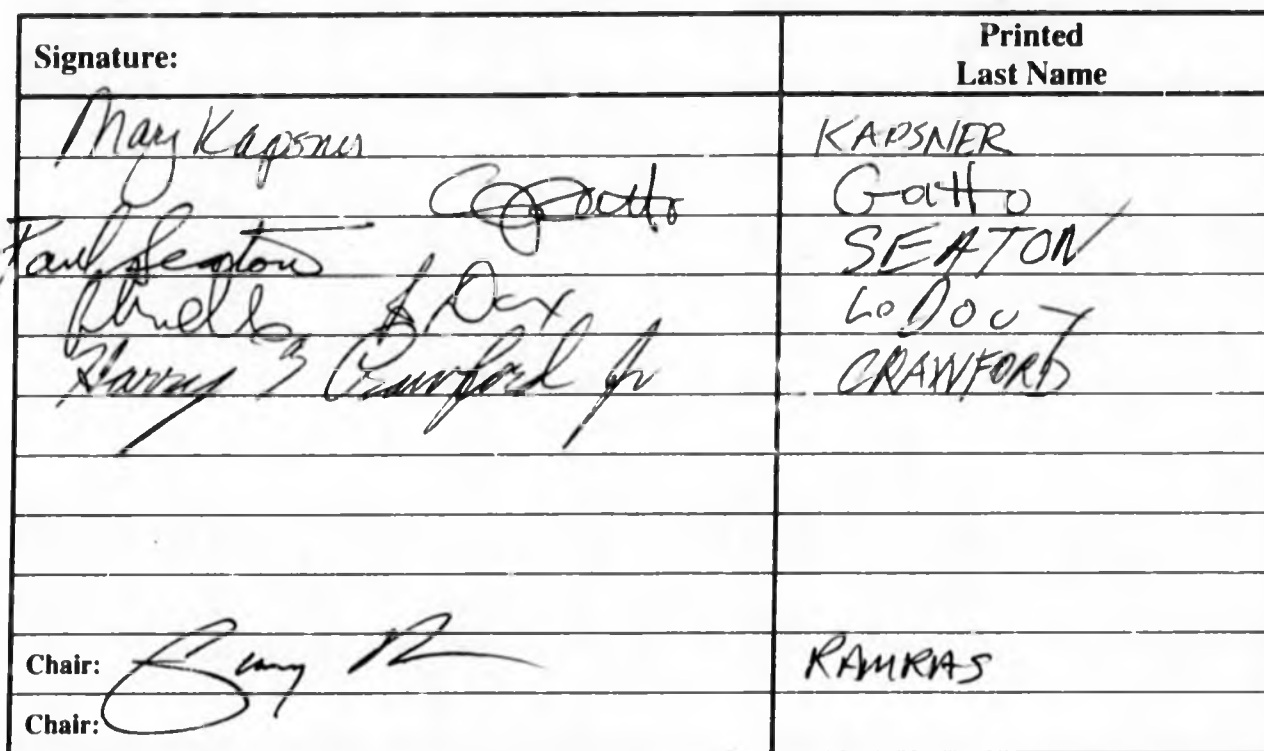 Signature: Printed Last Name
Mary Kapsner KAPSNER
Gatto Gatto
Paul Seaton SEATON
Harry Crawford Jr CRAWFORD
Chair: RAMRAS
Chair: